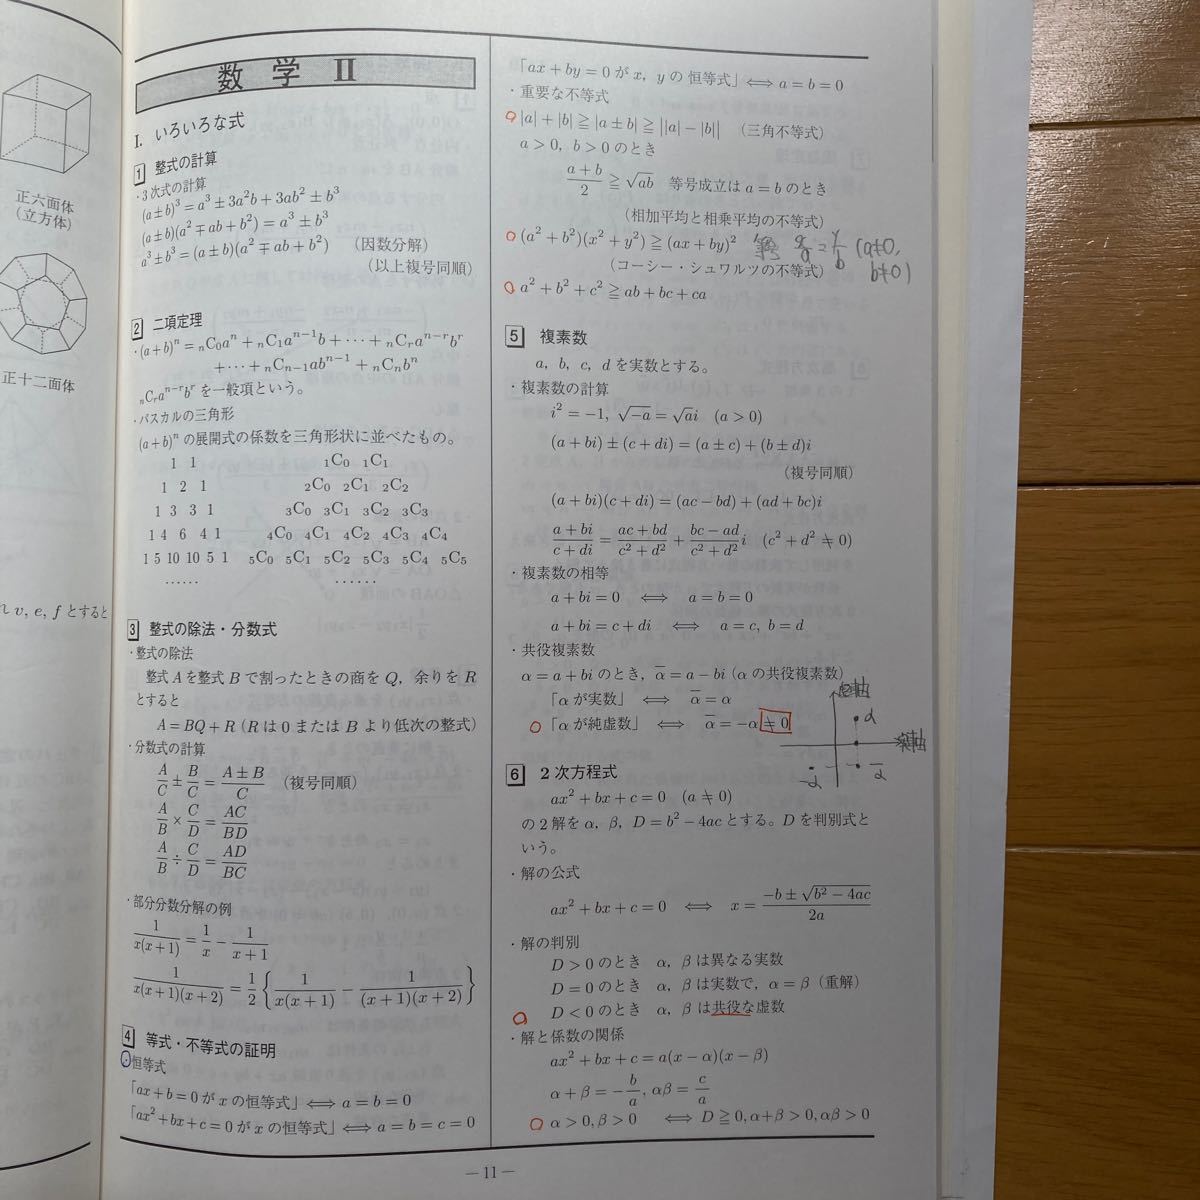 正六面体
(立方体)
正十二面体
れ v, e, f とすると
数 学 II
I. いろいろな式
1 整式の計算
・3次式の計算
(a±b)³=a³±3a²b+3ab²±b³
(a±b)(a²∓ab+b²)=a³±b³
a³±b³=(a±b)(a²∓ab+b²) (因数分解)
(以上複号同順)
2 二項定理
・(a+b)ⁿ=ₙC₀aⁿ+ₙC₁aⁿ⁻¹b+⋯+ₙCᵣaⁿ⁻ʳbʳ
+⋯+ₙCₙ₋₁abⁿ⁻¹+ₙCₙbⁿ
ₙCᵣaⁿ⁻ʳbʳ を一般項という。
・パスカルの三角形
(a+b)ⁿ の展開式の係数を三角形状に並べたもの。
1 1 ₁C₀ ₁C₁
1 2 1 ₂C₀ ₂C₁ ₂C₂
1 3 3 1 ₃C₀ ₃C₁ ₃C₂ ₃C₃
1 4 6 4 1 ₄C₀ ₄C₁ ₄C₂ ₄C₃ ₄C₄
1 5 10 10 5 1 ₅C₀ ₅C₁ ₅C₂ ₅C₃ ₅C₄ ₅C₅
…… ……
3 整式の除法・分数式
・整式の除法
整式 A を整式 B で割ったときの商を Q, 余りを R
とすると
A=BQ+R (R は 0 または B より低次の整式)
・分数式の計算
A/C±B/C=(A±B)/C (複号同順)
A/B×C/D=AC/BD
A/B÷C/D=AD/BC
・部分分数分解の例
1/(x(x+1))=1/x−1/(x+1)
1/(x(x+1)(x+2))=1/2{1/(x(x+1))−1/((x+1)(x+2))}
4 等式・不等式の証明
・恒等式
「ax+b=0 が x の恒等式」⟺a=b=0
「ax²+bx+c=0 が x の恒等式」⟺a=b=c=0
「ax+by=0 が x, y の 恒等式」⟺a=b=0
・重要な不等式
|a|+|b|≧|a±b|≧||a|−|b|| (三角不等式)
a>0, b>0 のとき
(a+b)/2≧√ab 等号成立は a=b のとき
(相加平均と相乗平均の不等式)
(a²+b²)(x²+y²)≧(ax+by)² 等号 x/a=y/b (a≠0,
b≠0)
(コーシー・シュワルツの不等式)
a²+b²+c²≧ab+bc+ca
5 複素数
a, b, c, d を実数とする。
・複素数の計算
i²=−1, √−a=√ai (a>0)
(a+bi)±(c+di)=(a±c)+(b±d)i
(複号同順)
(a+bi)(c+di)=(ac−bd)+(ad+bc)i
(a+bi)/(c+di)=(ac+bd)/(c²+d²)+(bc−ad)/(c²+d²)i (c²+d²≠0)
・複素数の相等
a+bi=0 ⟺ a=b=0
a+bi=c+di ⟺ a=c, b=d
・共役複素数
α=a+bi のとき, ᾱ=a−bi (α の共役複素数)
「α が実数」 ⟺ ᾱ=α
「α が純虚数」 ⟺ ᾱ=−α≠0
虚軸
α
実軸
−α
ᾱ
6 2次方程式
ax²+bx+c=0 (a≠0)
の2解を α, β, D=b²−4ac とする。D を判別式と
いう。
・解の公式
ax²+bx+c=0 ⟺ x=(−b±√(b²−4ac))/2a
・解の判別
D>0 のとき α, β は異なる実数
D=0 のとき α, β は実数で, α=β (重解)
D<0 のとき α, β は共役な虚数
・解と係数の関係
ax²+bx+c=a(x−α)(x−β)
α+β=−b/a, αβ=c/a
α>0, β>0 ⟺ D≧0, α+β>0, αβ>0
—11—